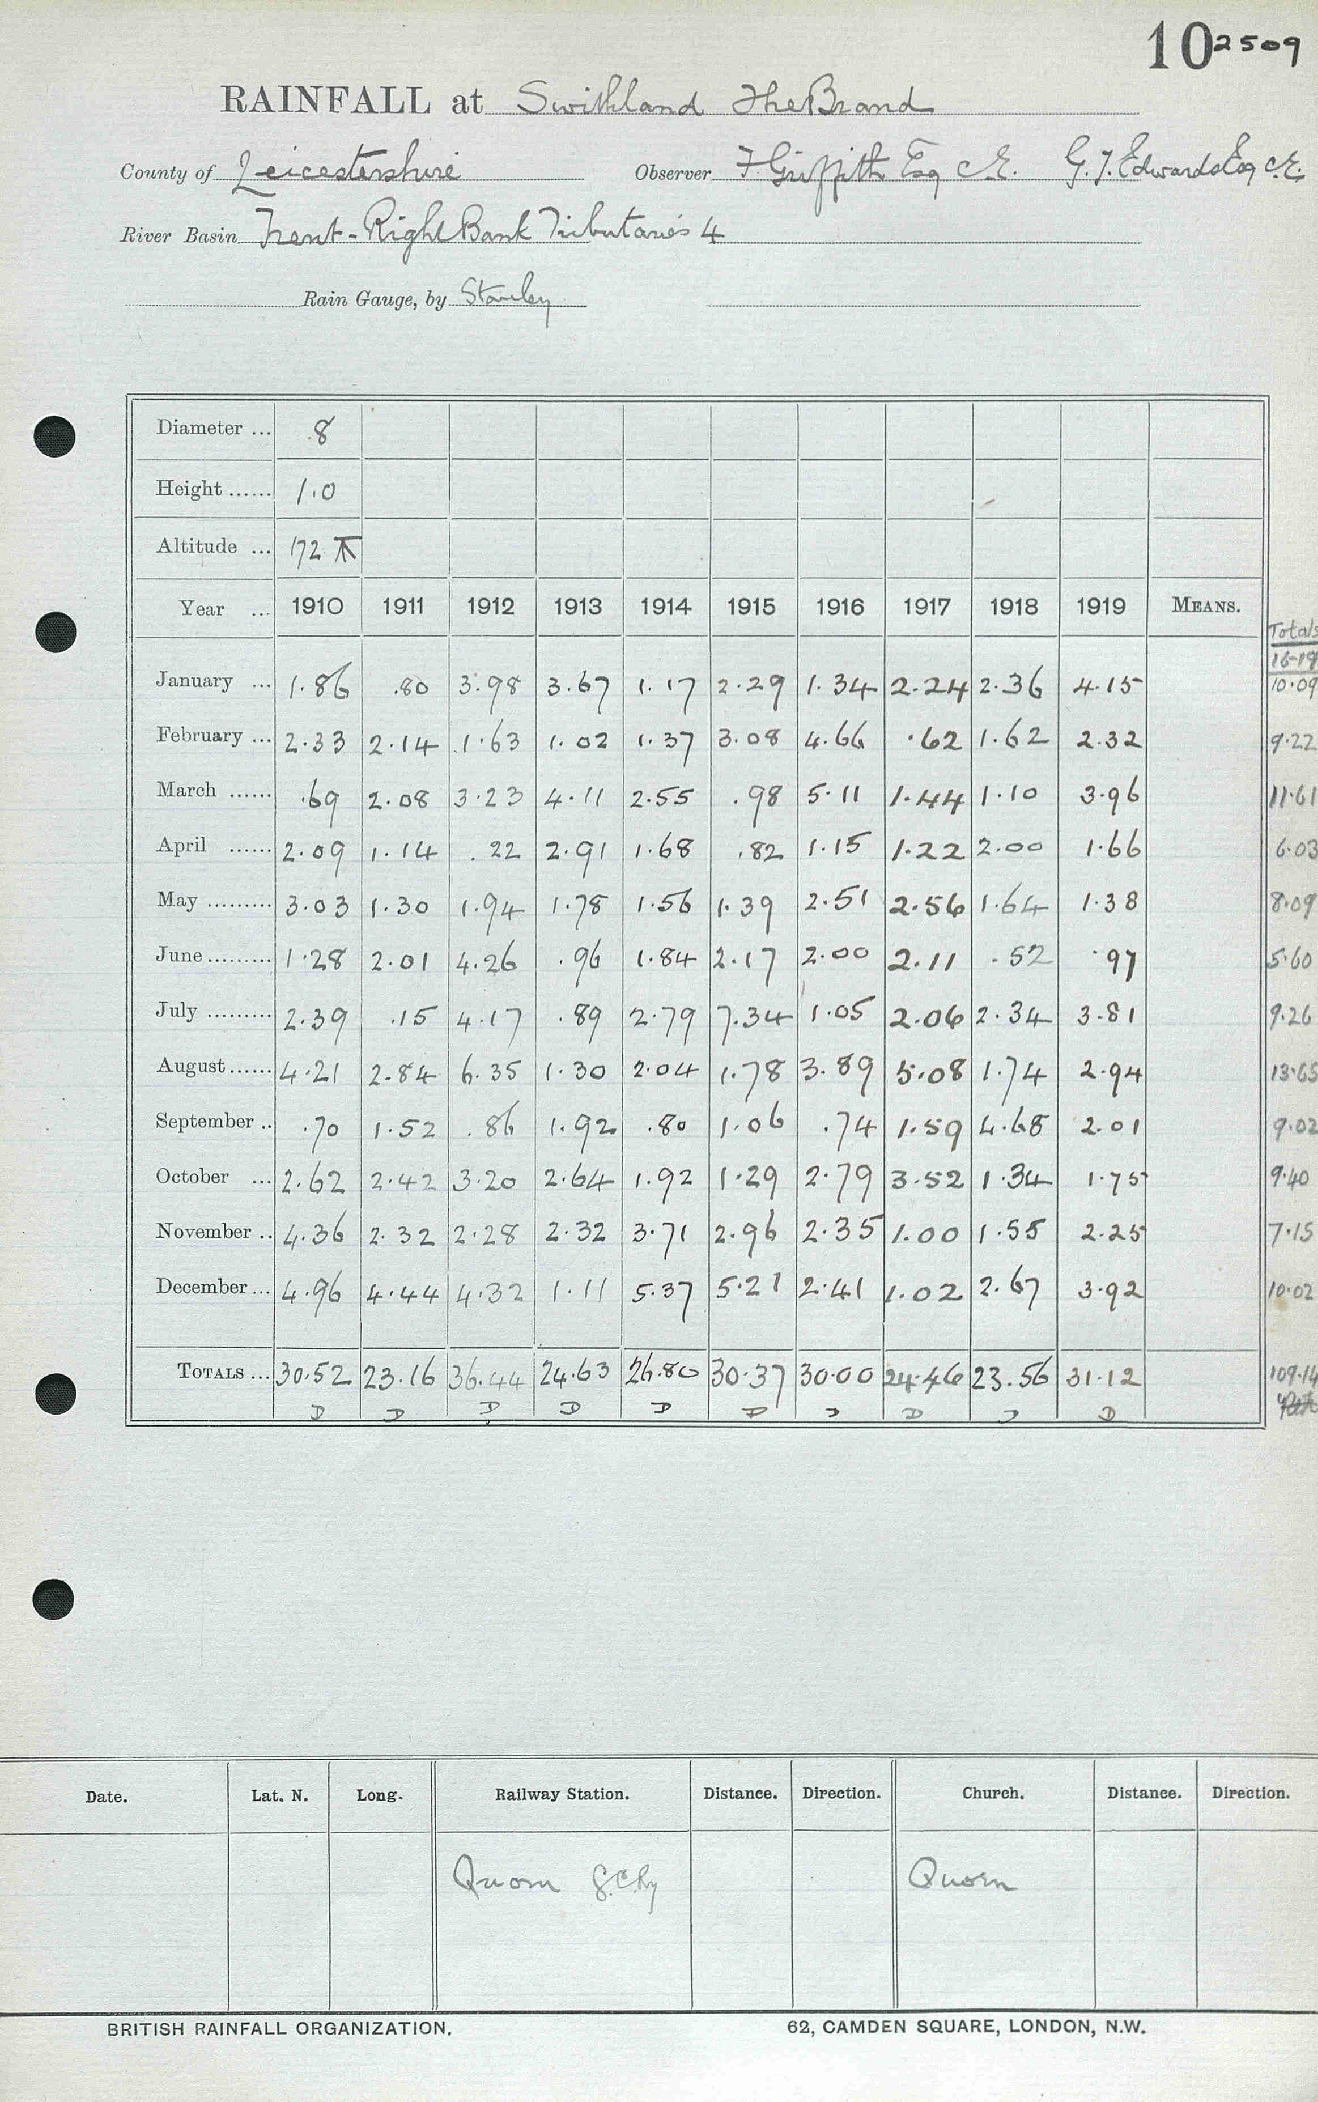 10 2509
RAINFALL at Swithland The Brand
County of Leicestershire Observer F Griffith Esq C.E. G.J. Edwards Esq C.E.
River Basin Trent - Right Bank Tributaries 4
Rain Gauge, by Stanley
Diameter ... 8
Height ...... 1.0
Altitude ... 172
Year ... 1910 1911 1912 1913 1914 1915 1916 1917 1918 1919 MEANS. Totals
16-19
January ... 1.86 .80 3.98 3.67 1.17 2.29 1.34 2.24 2.36 4.15 10.09
February ... 2.33 2.14 1.63 1.02 1.37 3.08 4.66 .62 1.62 2.32 9.22
March ...... .69 2.08 3.23 4.11 2.55 .98 5.11 1.44 1.10 3.96 11.61
April ...... 2.09 1.14 .22 2.91 1.68 .82 1.15 1.22 2.00 1.66 6.03
May ......... 3.03 1.30 1.94 1.78 1.56 1.39 2.51 2.56 1.64 1.38 8.09
June ......... 1.28 2.01 4.26 .96 1.84 2.17 2.00 2.11 .52 .97 5.60
July ......... 2.39 .15 4.17 .89 2.79 7.34 1.05 2.06 2.34 3.81 9.26
August ...... 4.21 2.84 6.35 1.30 2.04 1.78 3.89 5.08 1.74 2.94 13.65
September .. .70 1.52 .86 1.92 .80 1.06 .74 1.59 4.68 2.01 9.02
October ... 2.62 2.42 3.20 2.64 1.92 1.29 2.79 3.52 1.34 1.75 9.40
November .. 4.36 2.32 2.28 2.32 3.71 2.96 2.35 1.00 1.55 2.25 7.15
December ... 4.96 4.44 4.32 1.11 5.37 5.21 2.41 1.02 2.67 3.92 10.02
TOTALS ... 30.52 23.16 36.44 24.63 26.80 30.37 30.00 24.46 23.56 31.12 109.14
D D D D D D D D D D
Date. Lat. N. Long. Railway Station. Distance. Direction. Church. Distance. Direction.
Quorn G.C.Ry Quorn
BRITISH RAINFALL ORGANIZATION. 62, CAMDEN SQUARE, LONDON, N.W.